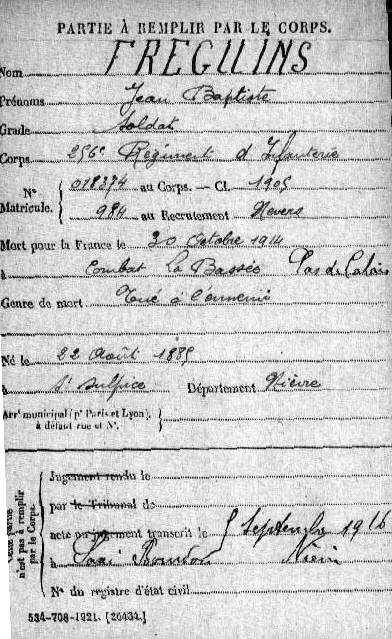 PARTIE À REMPLIR PAR LE CORPS.
Nom FREGUINS
Prénoms Jean Baptiste
Grade Soldat
Corps 256e Régiment d'Infanterie
N° Matricule. 018374 au Corps. — Cl. 1905
984 au Recrutement Nevers
Mort pour la France le 30 Octobre 1914
à Combat La Bassée Pas de Calais
Genre de mort Tué à l'ennemi
Né le 22 Août 1885
à St Sulpice Département Nièvre
Arrt municipal (pr Paris et Lyon), à défaut rue et N°.
Cette partie n'est pas à remplir par le Corps.
Jugement rendu le
par le Tribunal de
acte ou jugement transcrit le 5 Septembre 1916
à
N° du registre d'état civil
534-708-1921. [26434.]